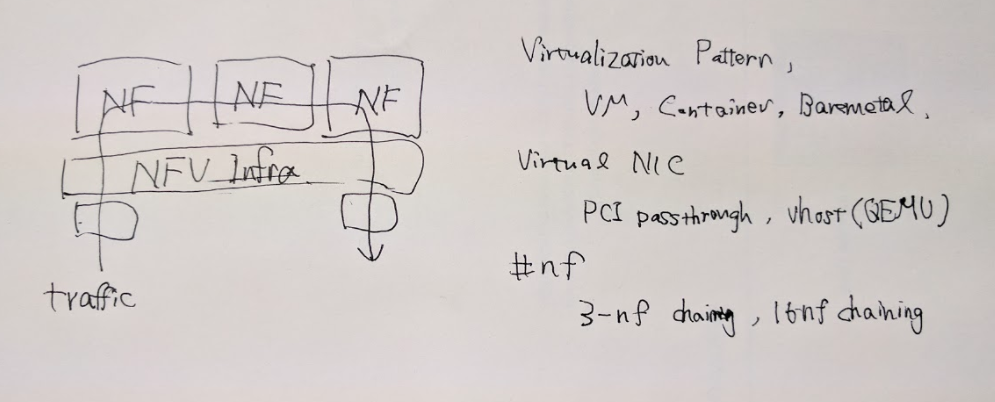 NF NF NF
NFV Infra
traffic
Virtualization Pattern,
VM, Container, Baremetal.
Virtual NIC
PCI passthrough, vhost(QEMU)
#nf
3-nf chaining, 16nf chaining